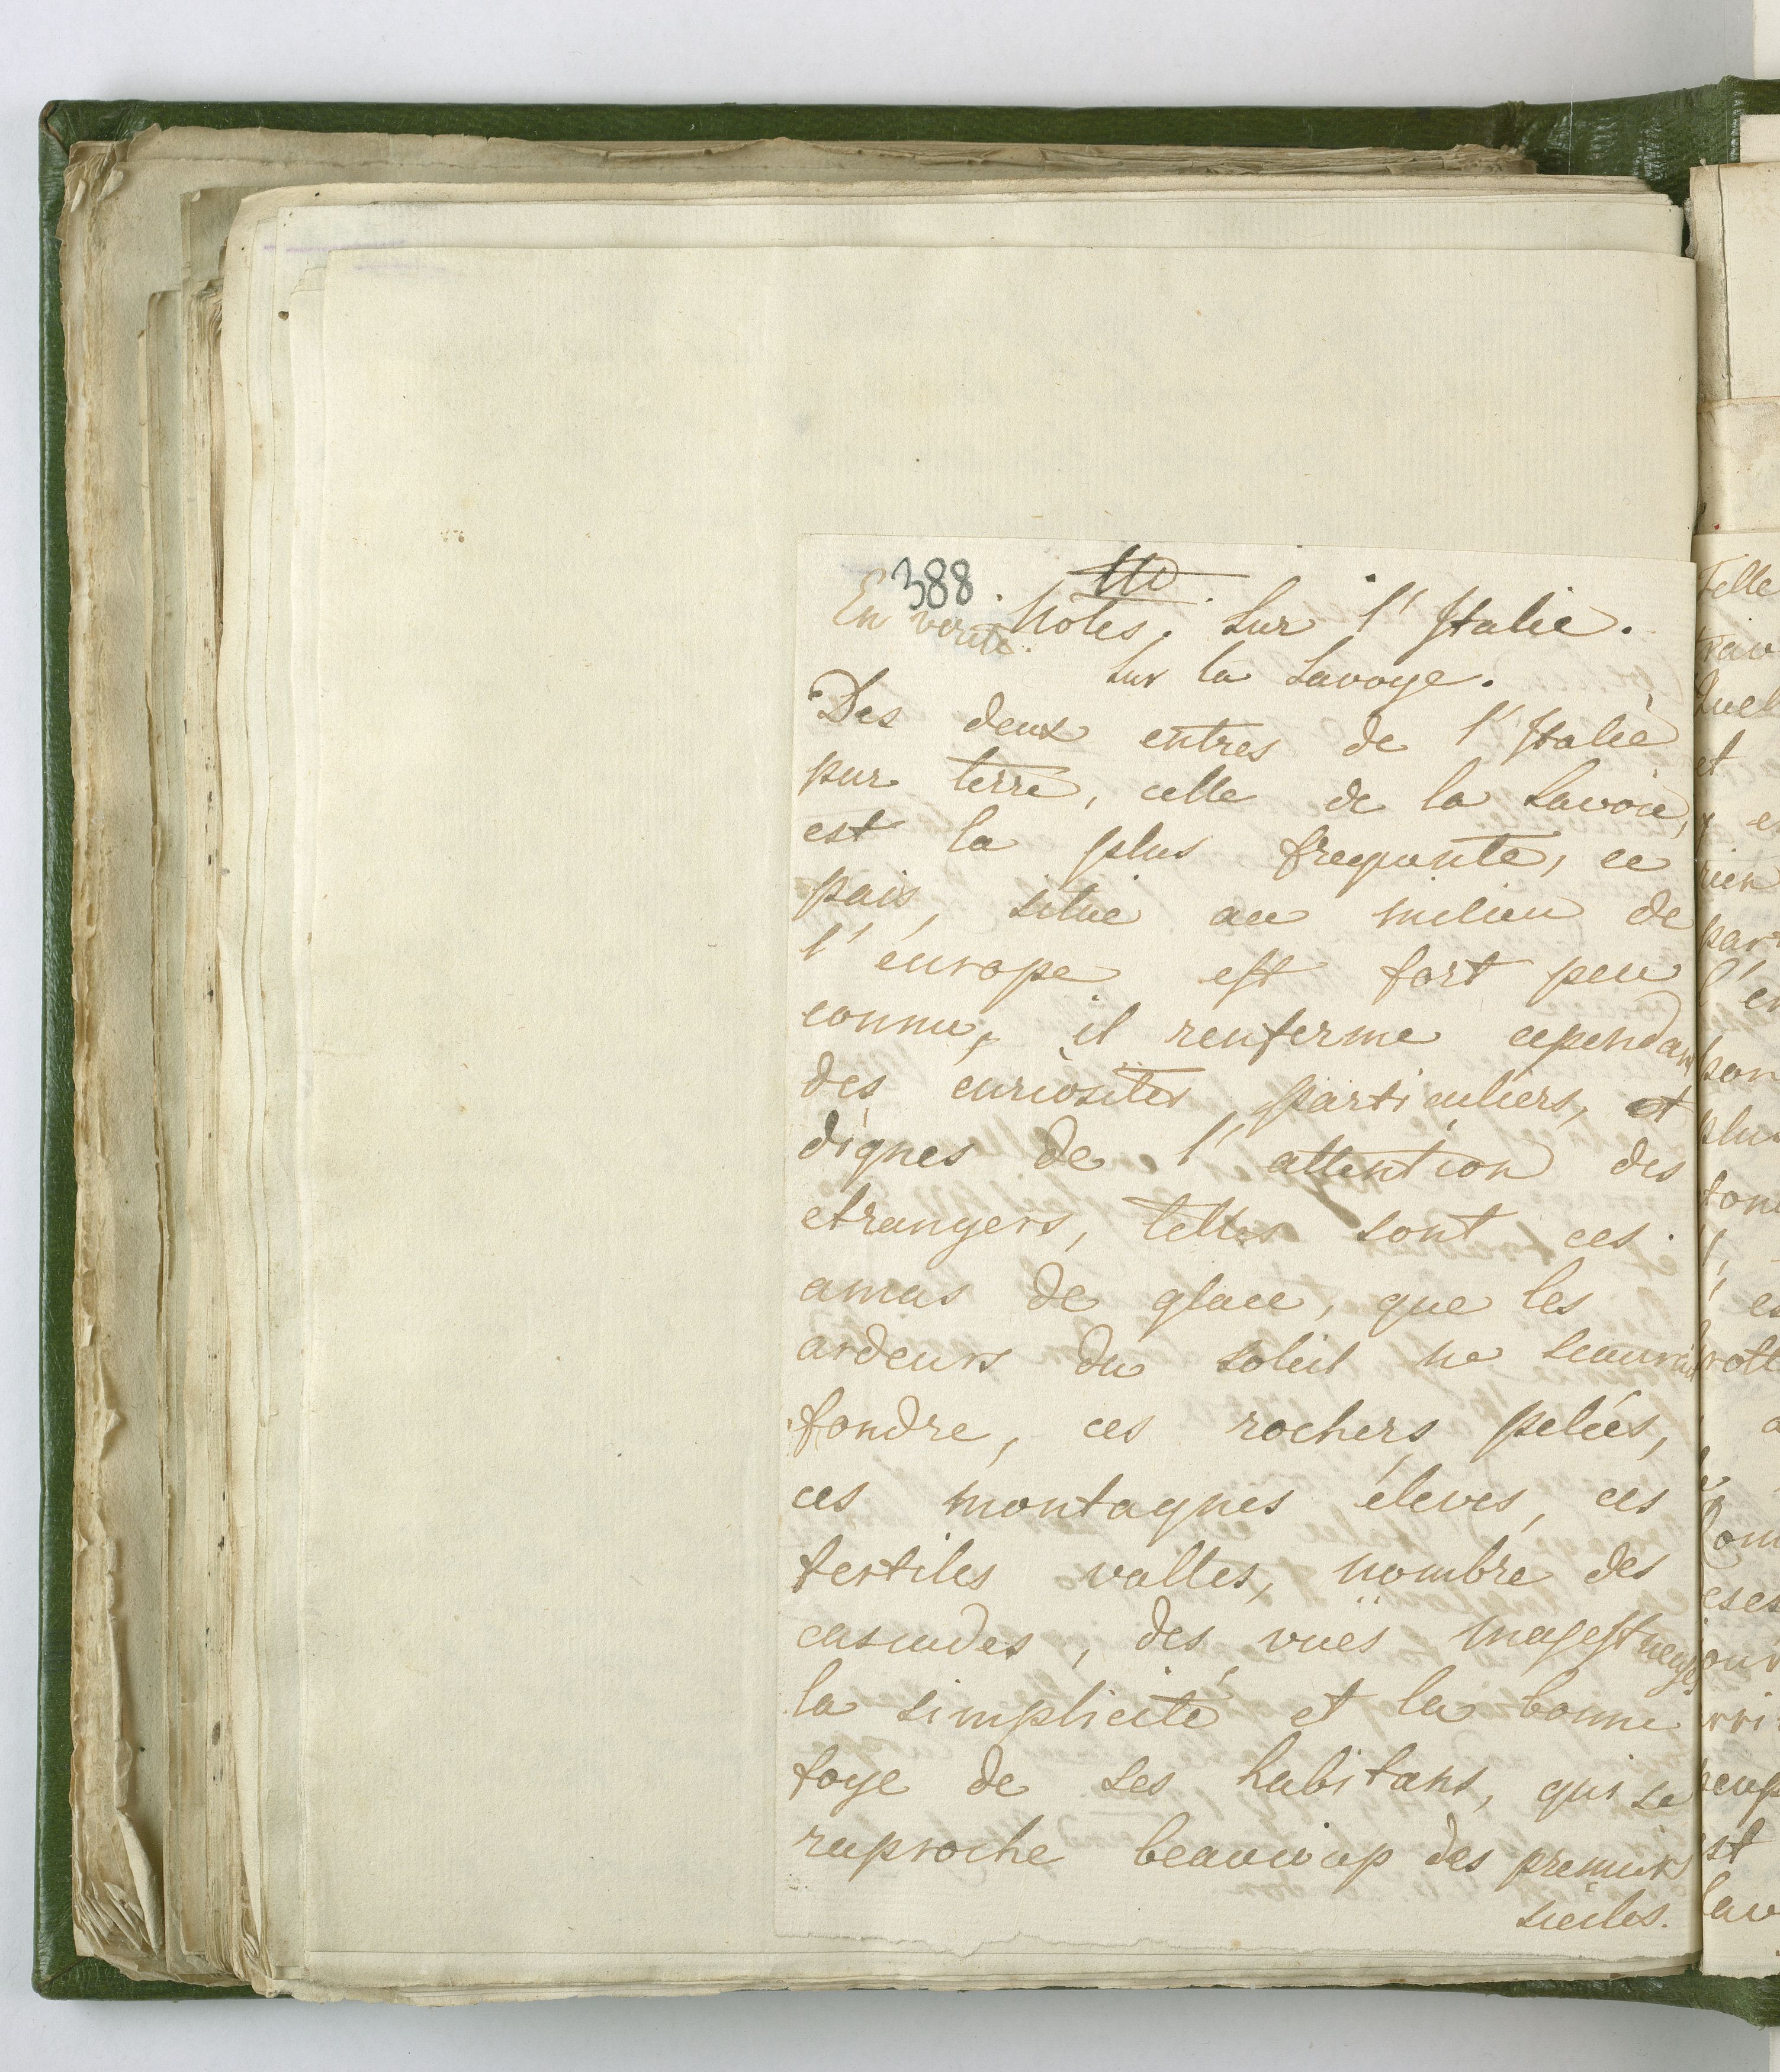 388
En verité.
Notes. sur l'Italie.
sur la Savoye.
Des deux entres de l'Italie
par terre, celle de la Savoie,
est la plus frequante, ce
pais, situe au milieu de
l'éurope est fort peu
connu, il renferme cependant
des curiosites, particuliers, et
dignes de l'attention des
etrangers, telles sont ces
amas de glace, que les
ardeurs du soleil ne
fondre, ces rochers pelées,
ces montagnes éleves, ces
fertiles valles, nombre des
cascades, des vuës majestueuses
la simplicité et la bonne
foye de ses habitans, qui se
raproche beaucoup des premiers
siecles.